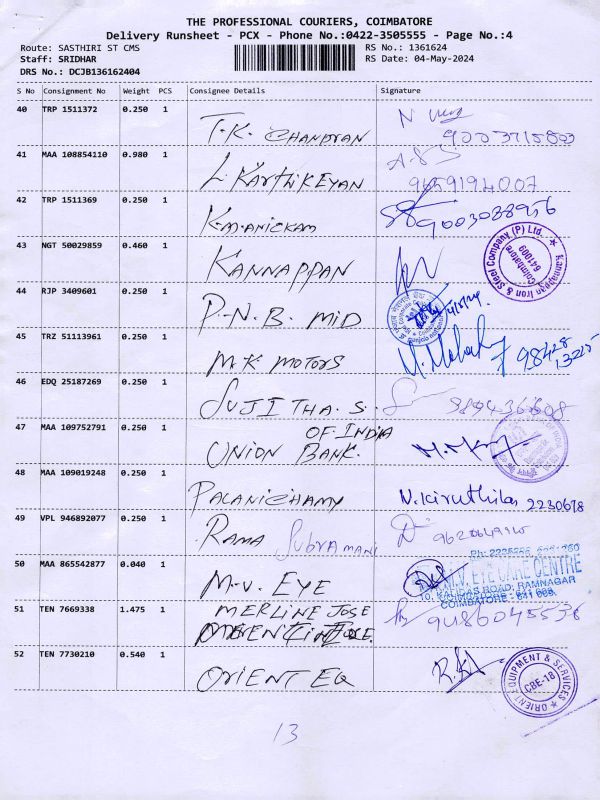 THE PROFESSIONAL COURIERS, COIMBATORE
Delivery Runsheet - PCX - Phone No.:0422-3505555 - Page No.:4
Route: SASTHIRI ST CMS
RS No.: 1361624
Staff: SRIDHAR
RS Date: 04-May-2024
DRS No.: DCJB136162404
S No Consignment No Weight PCS Consignee Details Signature
40 TRP 1511372 0.250 1
T.K. CHANDRAN
41 MAA 108854110 0.980 1
L. KARTHIKEYAN
9659194007
42 TRP 1511369 0.250 1
K.MANICKAM
9003038956
43 NGT 50029859 0.460 1
KANNAPPAN
Kannappan Iron & Steel Company (P) Ltd.
Coimbatore
641009
44 RJP 3409601 0.250 1
P.N.B. MID
45 TRZ 51113961 0.250 1
M.K MOTORS
98428
13215
46 EDQ 25187269 0.250 1
SUJITHA. S.
47 MAA 109752791 0.250 1
OF INDIA
UNION BANK.
48 MAA 109019248 0.250 1
PALANICHAMY
N. Kiruthika 2230678
49 VPL 946892077 0.250 1
RAMA Subramani
50 MAA 865542877 0.040 1
M.V. EYE
M.V. EYE CARE CENTRE
10, KALIDAS ROAD, RAMNAGAR
COIMBATORE - 641 009.
51 TEN 7669338 1.475 1
MERLINE JOSE
9486045538
52 TEN 7730210 0.540 1
ORIENT EQ
ORIENT EQUIPMENT & SERVICES
CBE-18
13